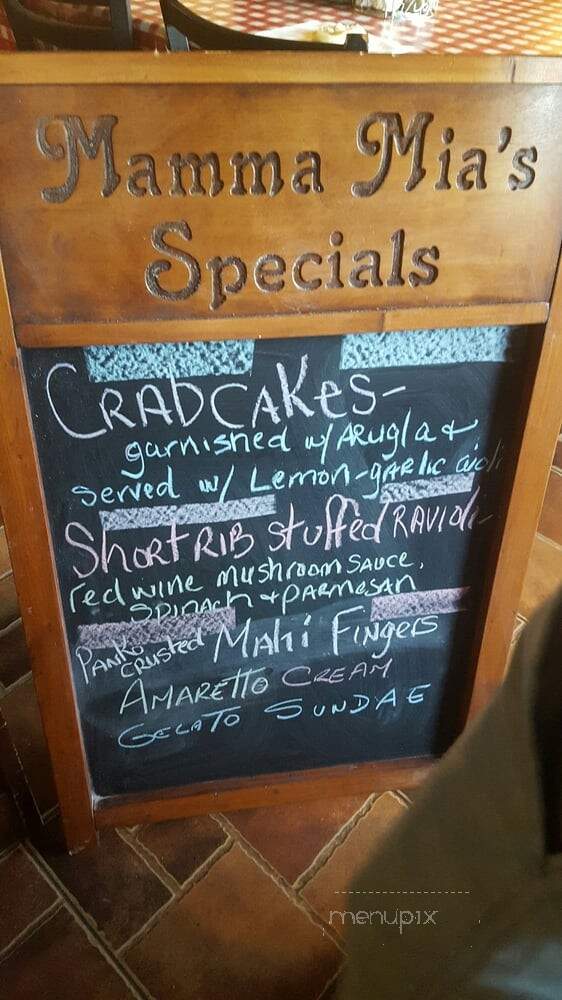 Mamma Mia's
Specials
CRABCAKes-
garnished w/ ARugla +
served w/ Lemon-gARlic aioli
ShortRIB stuffed RAVioli-
red wine mushroom sauce,
spinach + parmesan
PANKo crusted Mahi Fingers
AMARETTO CREAM
GELATO SUNDAE
menupix